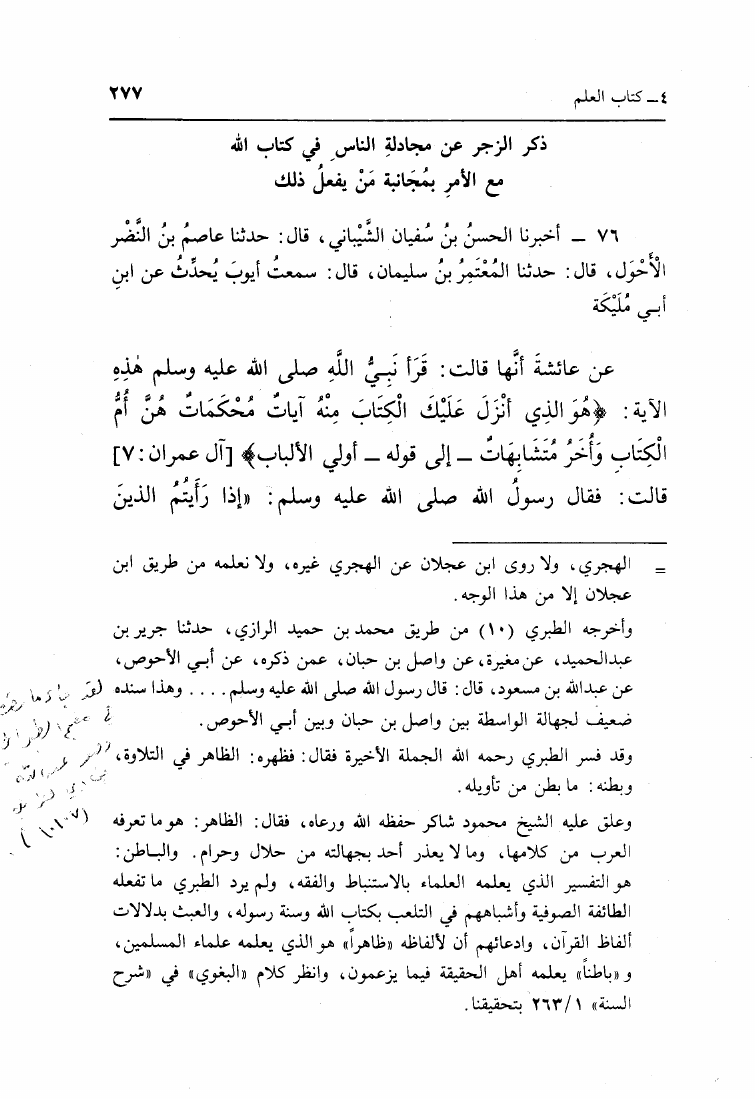 ٤ ـ كتاب العلم ٢٧٧
ذكر الزجر عن مجادلةِ الناسِ في كتاب الله
مع الأمرِ بمُجَانبة مَنْ يفعلُ ذلك
٧٦ ـ أخبرنا الحسنُ بنُ سُفيان الشَّيْباني، قال: حدثنا عاصمُ بنُ النَّضْر
الْأَحْوَل، قال: حدثنا المُعْتَمِرُ بنُ سليمان، قال: سمعتُ أيوبَ يُحدِّثُ عن ابنِ
أبي مُلَيْكَة
عن عائشةَ أنَّها قالت: قَرَأ نَبِيُّ اللَّهِ صلى الله عليه وسلم هٰذِهِ
الآية: ﴿هُوَ الذِي أنْزَلَ عَلَيْكَ الْكِتَابَ مِنْهُ آياتٌ مُحْكَمَاتٌ هُنَّ أُمُّ
الْكِتَابِ وَأُخَرُ مُتَشَابِهَاتٌ ـ إلى قوله ـ أولي الألباب﴾ [آل عمران: ٧]
قالت: فقال رسولُ الله صلى الله عليه وسلم: «إذا رَأَيتُمُ الذينَ
= الهجري، ولا روى ابن عجلان عن الهجري غيره، ولا نعلمه من طريق ابن
عجلان إلا من هذا الوجه.
وأخرجه الطبري (١٠) من طريق محمد بن حميد الرازي، حدثنا جرير بن
عبدالحميد، عن مغيرة، عن واصل بن حبان، عمن ذكره، عن أبي الأحوص،
عن عبدالله بن مسعود، قال: قال رسول الله صلى الله عليه وسلم.... وهذا سنده
ضعيف لجهالة الواسطة بين واصل بن حبان وبين أبي الأحوص.
وقد فسر الطبري رحمه الله الجملة الأخيرة فقال: فظهره: الظاهر في التلاوة،
وبطنه: ما بطن من تأويله.
وعلق عليه الشيخ محمود شاكر حفظه الله ورعاه، فقال: الظاهر: هو ما تعرفه
العرب من كلامها، وما لا يعذر أحد بجهالته من حلال وحرام. والباطن:
هو التفسير الذي يعلمه العلماء بالاستنباط والفقه، ولم يرد الطبري ما تفعله
الطائفة الصوفية وأشباههم في التلعب بكتاب الله وسنة رسوله، والعبث بدلالات
ألفاظ القرآن، وادعائهم أن لألفاظه «ظاهراً» هو الذي يعلمه علماء المسلمين،
و «باطناً» يعلمه أهل الحقيقة فيما يزعمون، وانظر كلام «البغوي» في «شرح
السنة» ٢٦٣/١ بتحقيقنا.
لقد
في معجم
(١٠١٠٧)